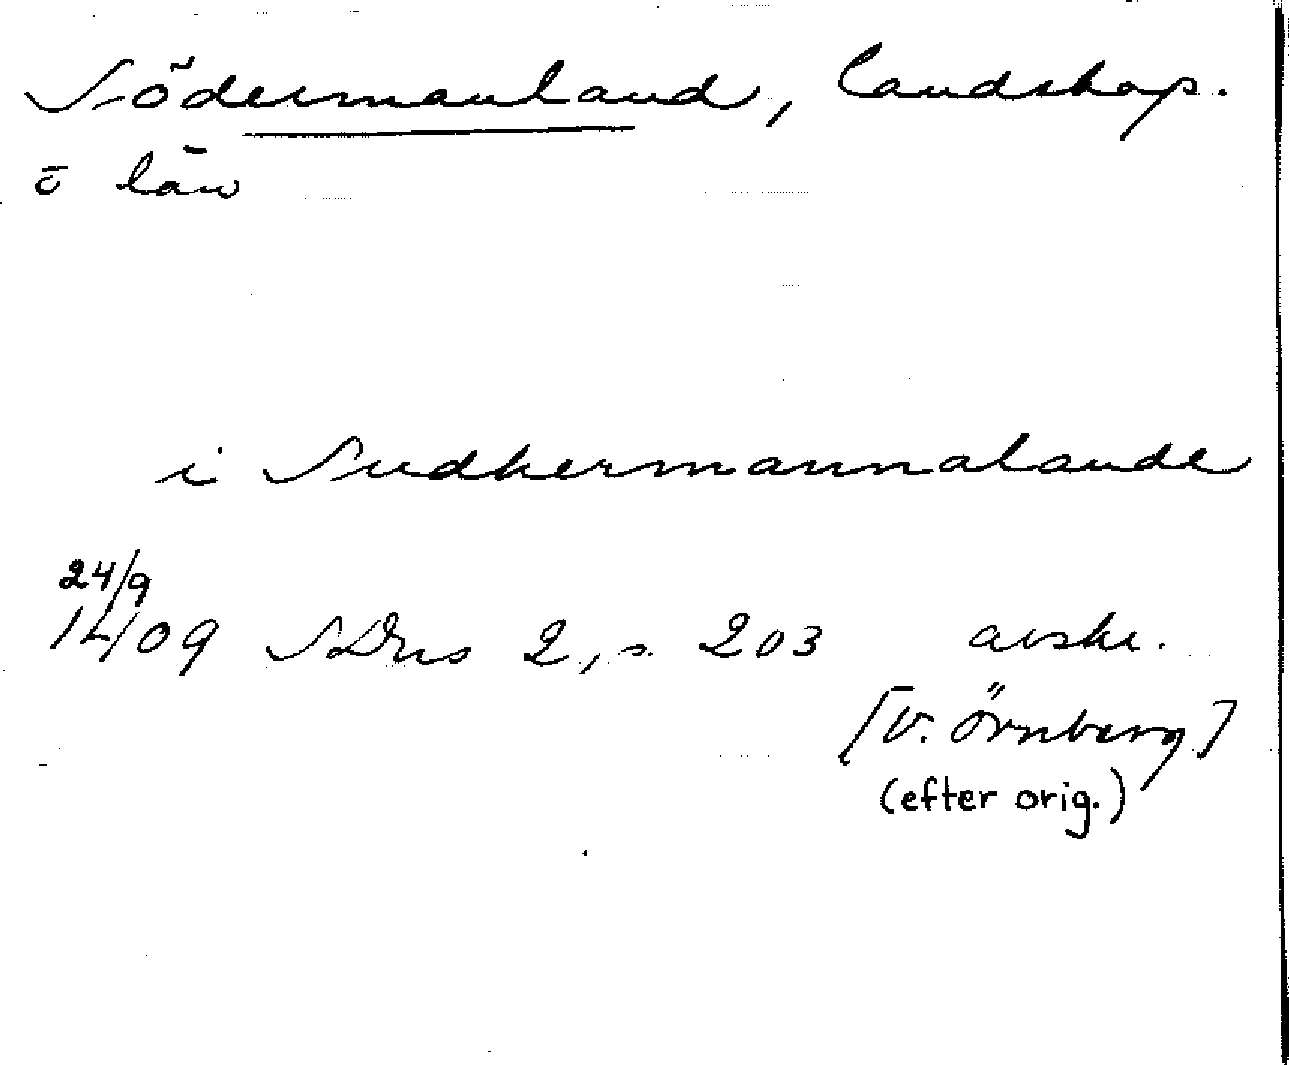 Södermanland, landskap.
o län
i Sudhermannalande
24/9
1409 SDns 2, s. 203 avskr.
[V. Örnberg]
(efter orig.)